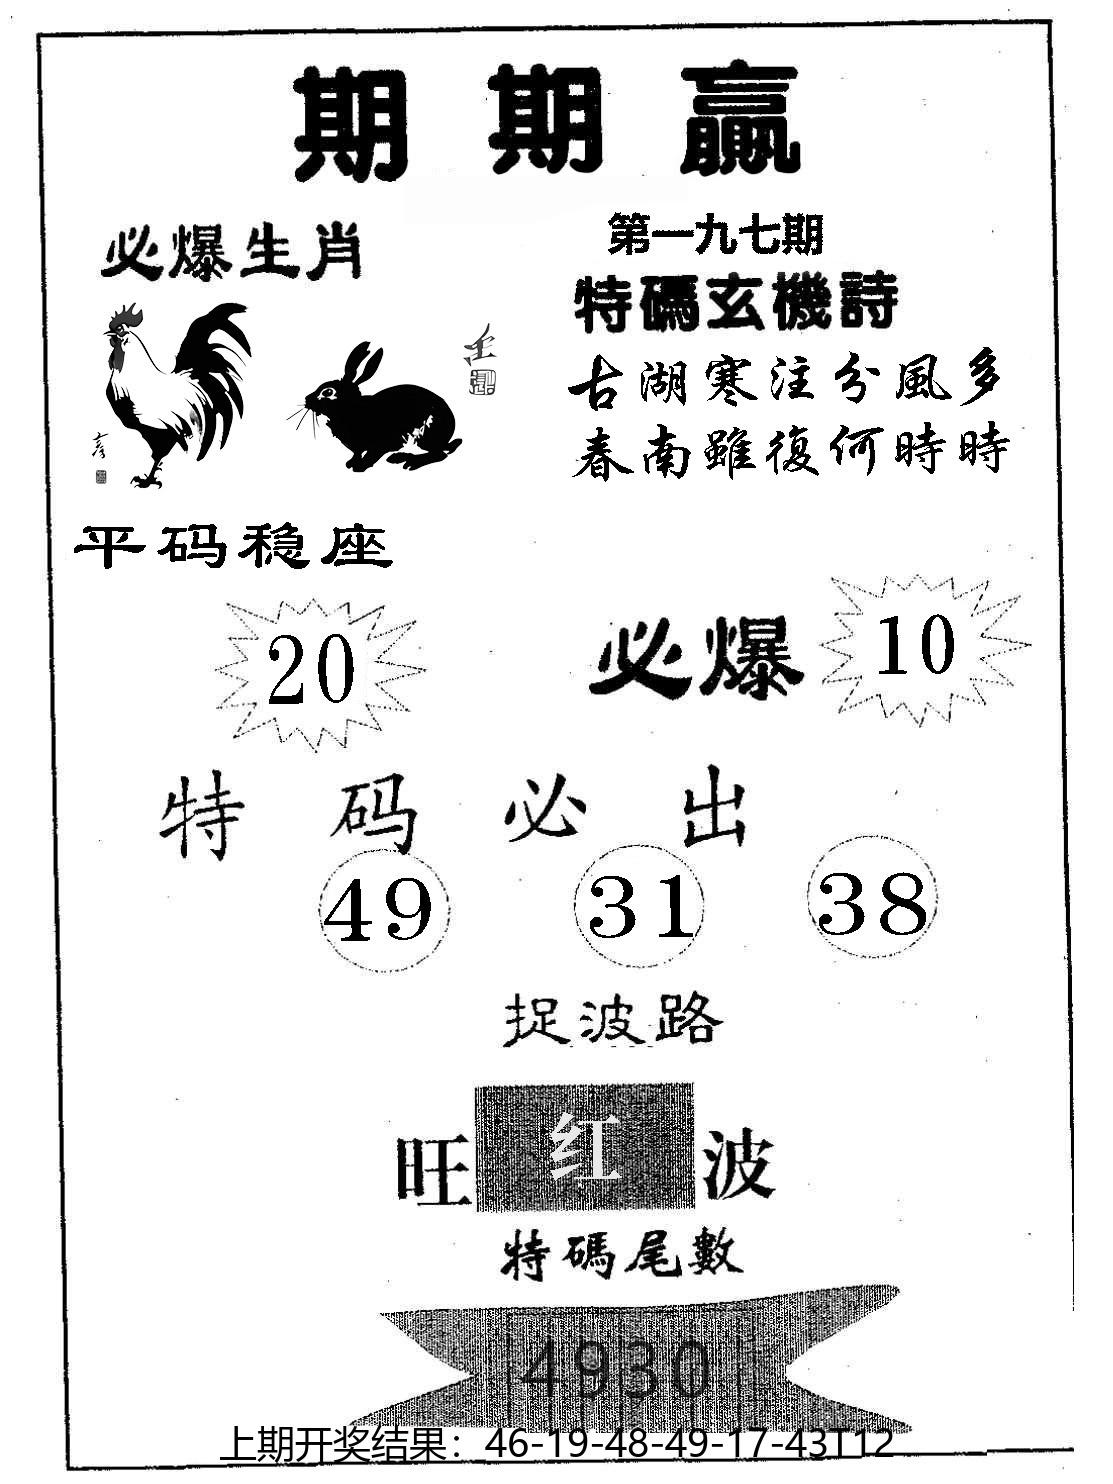 期期贏
必爆生肖
第一九七期
特碼玄機詩
古湖寒注分風多
春南雖復何時時
平码稳座
20
必爆
10
特码必出
49 31 38
捉波路
旺 红 波
特碼尾數
4930
上期开奖结果：46-19-48-49-17-43T12